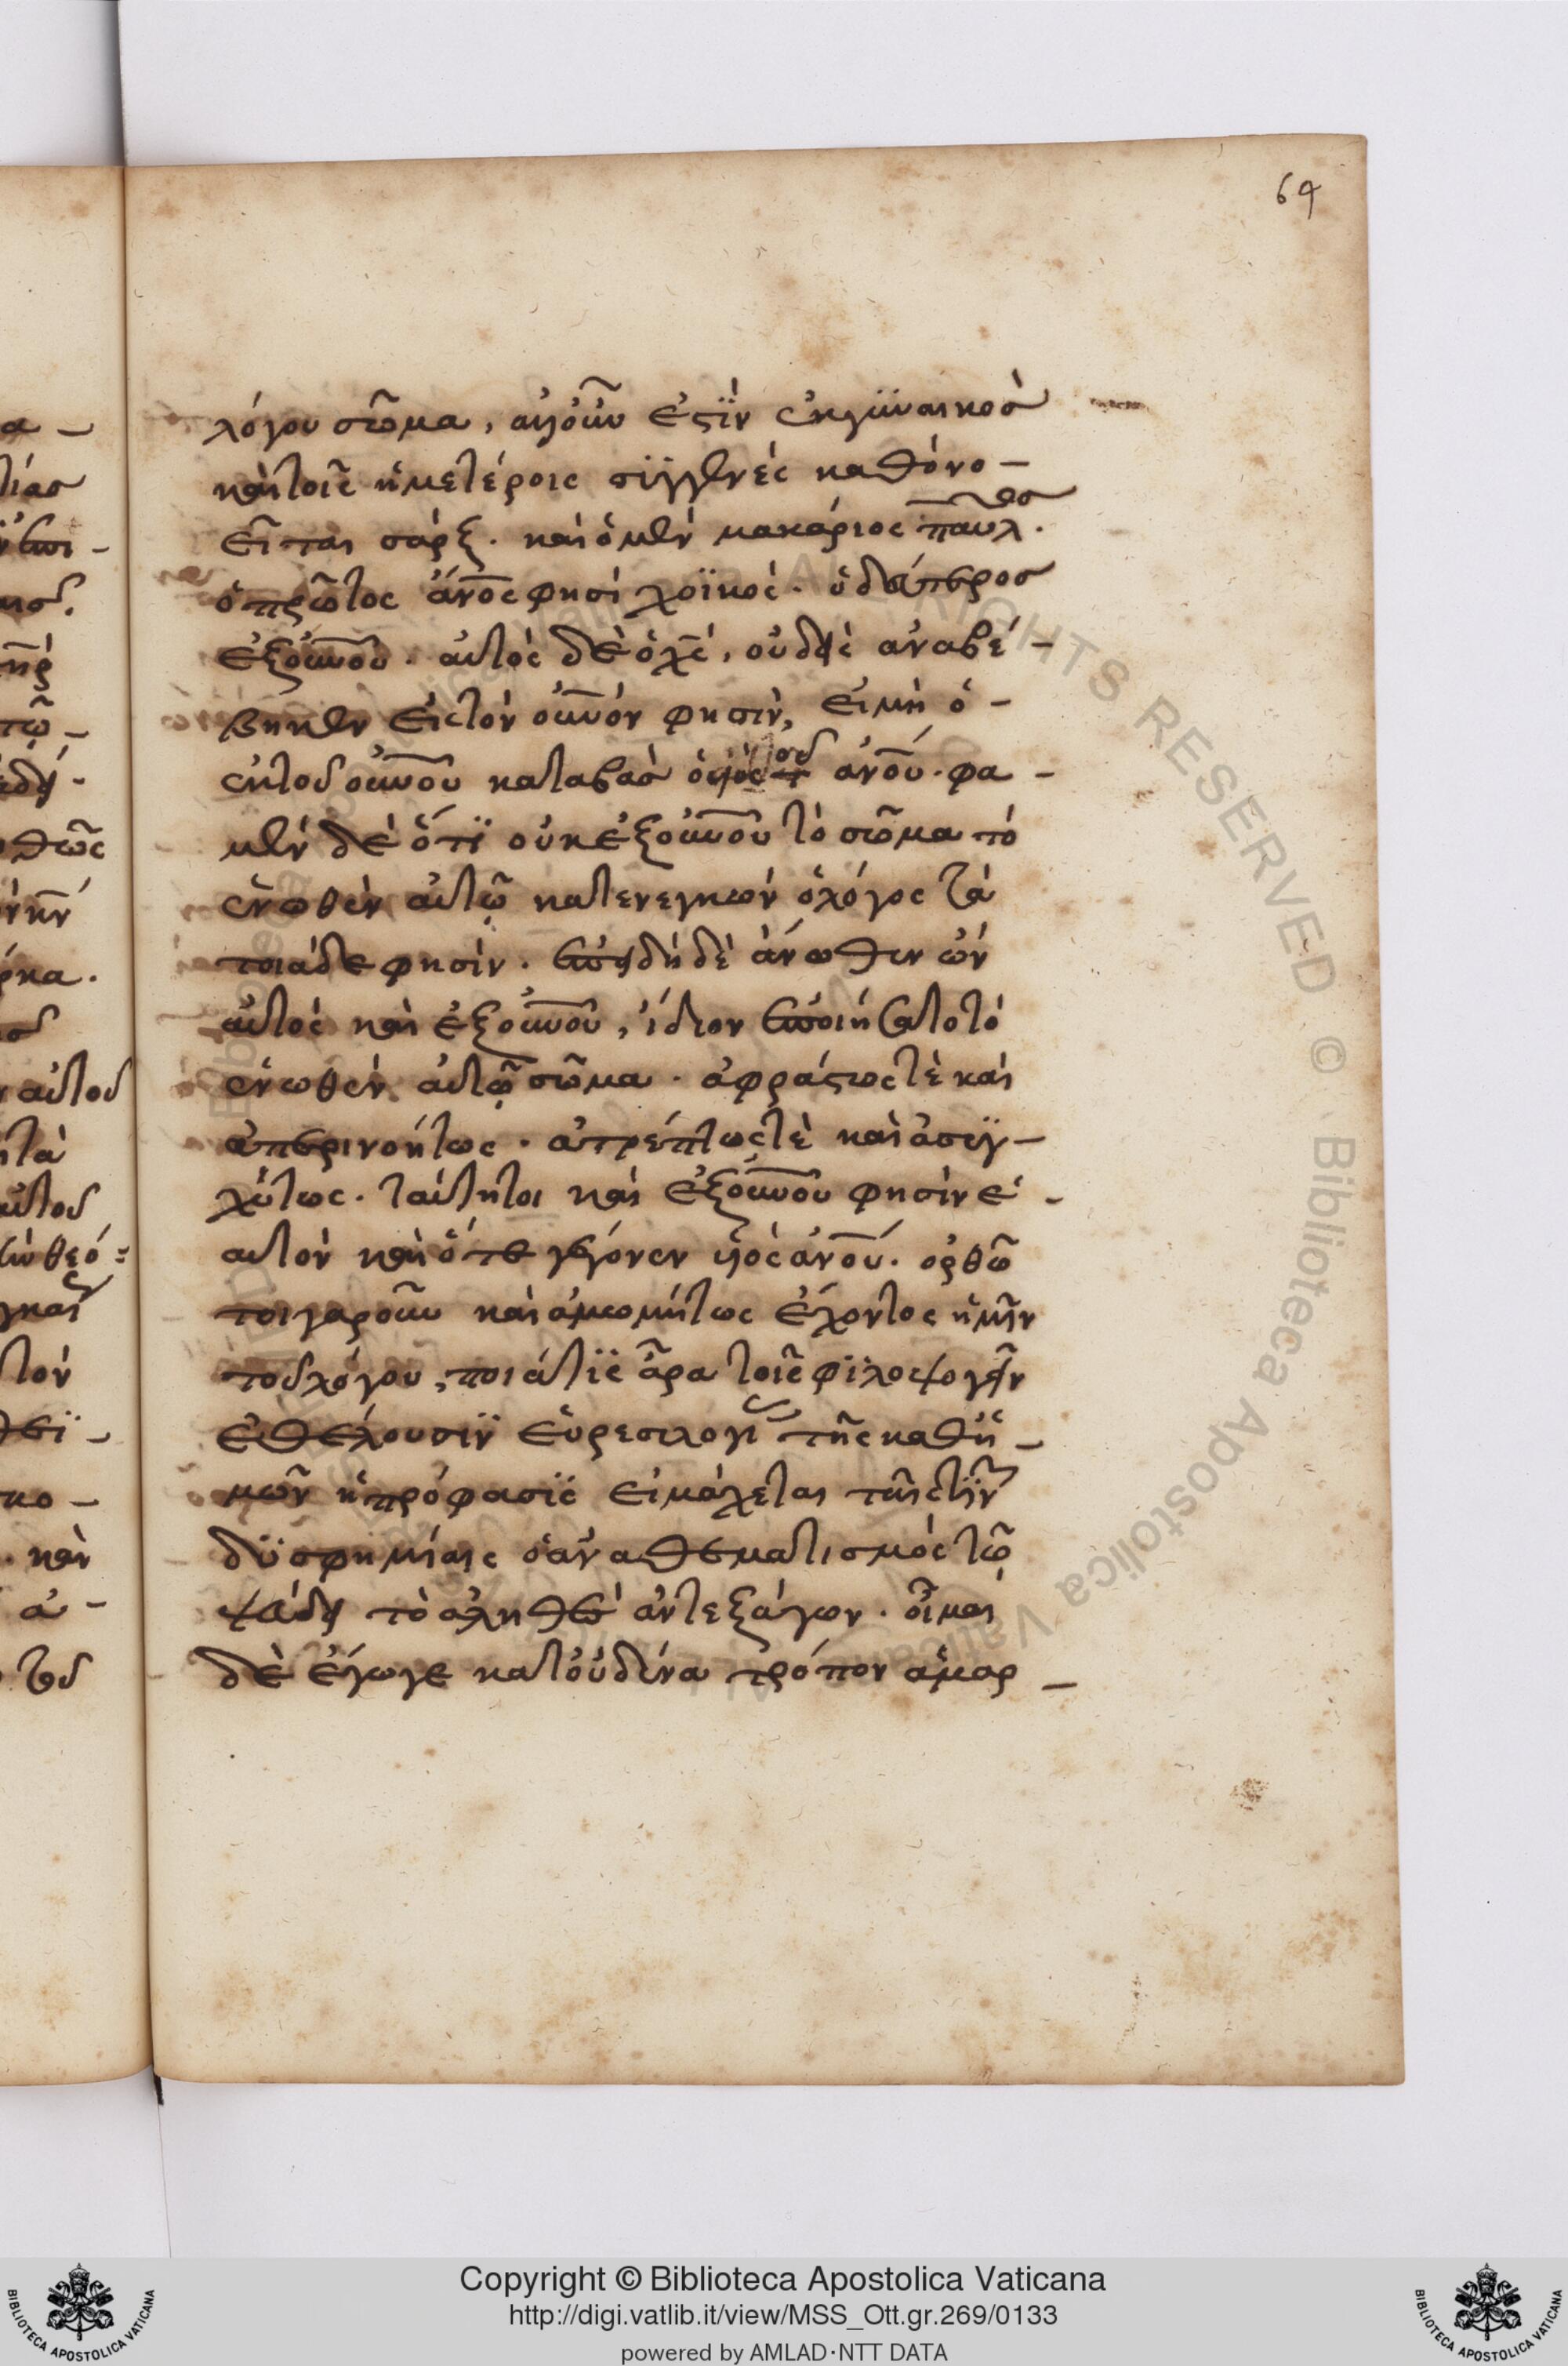 64
λόγου σῶμα, αὐγοῦν ἐστϊν ἐκγϋναικοσ
καὶ τοῖς ἡμετέροις σϋγγενές καθό νο-
εῖται σάρξ. καὶ ὁ μὲν μακάριος παυλος.
ὁ πρῶτος ἄνος φησὶ χοϊκός. ὁ δεύτεροσ
ἐξ οὐνοῦ. αὐτὸς δὲ ὁ χς, οὐδεὶς ἀναβέ-
βηκεν εἰς τὸν οὐνόν φησιν, εἰ μὴ ὁ-
ἐκ τοῦ οὐνοῦ καταβὰσ ὁ υἱὸς τοῦ ἀνοῦ. φα-
μὲν δὲ ὅτϊ οὐκ ἐξ οὐνοῦ τὸ σῶμα τὸ
ἑνωθὲν αὐτῶ κατενεγκὼν ὁ λόγος τὰ
τοιάδε φησίν. ἐπειδὴ δὲ ἄνωθεν ὢν
αὐτὸς καὶ ἐξ οὐνοῦ, ἴδιον ἐποιήσατο τὸ
ἑνωθὲν αὐτῶ σῶμα. ἀφράστως τὲ καὶ
ἀπερινοήτως. ἀτρέπτως τὲ καὶ ἀσϋγ-
χύτως. ταύτητοι καὶ ἐξ οὐνοῦ φησὶν ἑ-
αυτὸν καὶ ὅτε γέγονεν υἱὸς ἀνοῦ. ὀρθῶ
τοιγαροῦν καὶ ἀμωμήτως ἔχοντος ἡμῖν
τοῦ λόγου, ποία τϊς ἆρα τοῖς φϊλοψογεῖν
ἐθέλουσϊν εὑρεσιλογι τῆς καθ' ἡ-
μῶν ἡ πρόφασϊς εἰ μάχεται ταῖς τϊν
δϋσφημίαις ὁ ἀναθεματισμὸς τῶ
ψεύδει τὸ ἀληθὲς ἀντεξάγων. οἶμαι
δὲ ἔγωγε κατ' οὐδένα τρόπον ἁμαρ-
Copyright © Biblioteca Apostolica Vaticana
http://digi.vatlib.it/view/MSS_Ott.gr.269/0133
powered by AMLAD·NTT DATA